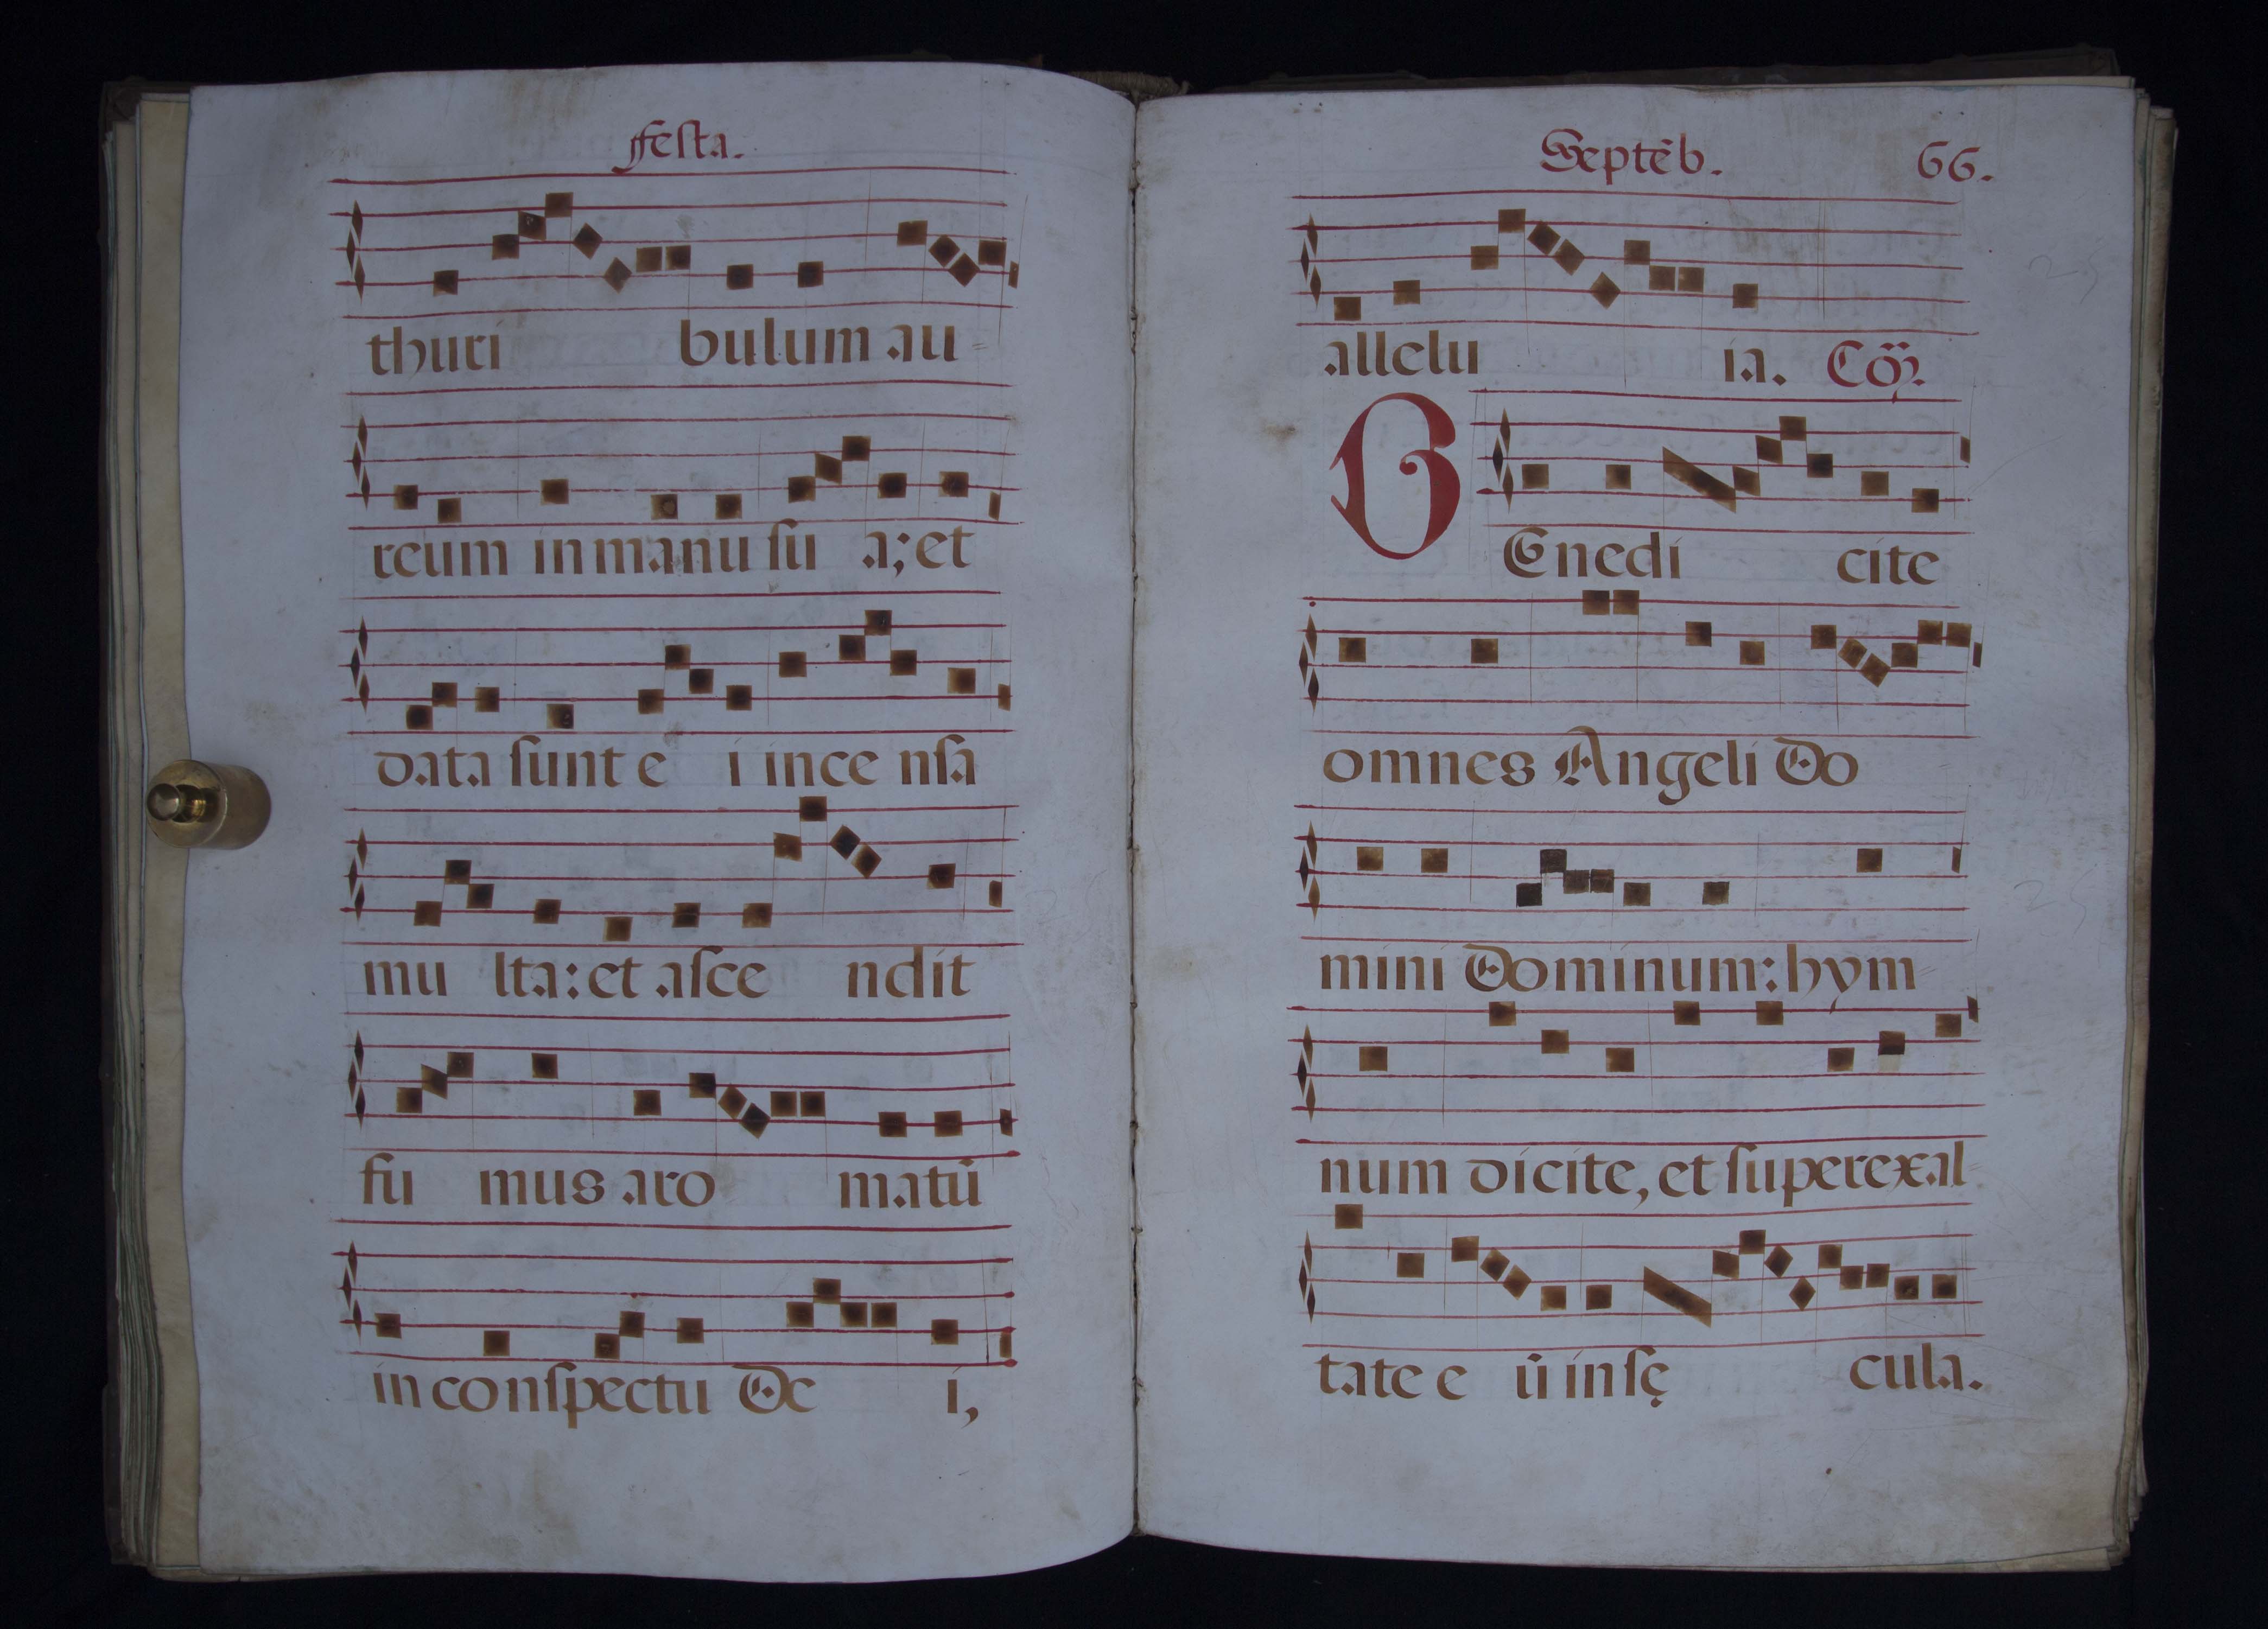 ffesta.
thuri bulum au
reum in manu ſu a; et
data ſunt e i ince nſa
mu lta: et aſce ndit
fu mus aro matū
in conſpectu De i,
Septēb. 66.
allelu ia. Cõ.
BEnedi cite
omnes Angeli Do
mini Dominum: hym
num dicite, et ſuperexal
tate e ū in ſę cula.